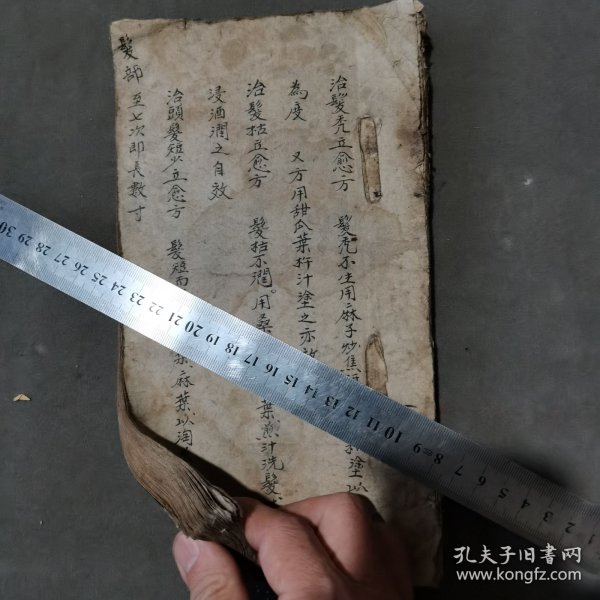 治髮禿立愈方　髮禿不生用二麻子炒焦
塗以
為度　又方用甜瓜葉杵汁塗之亦
治髮枯立愈方　髮枯不潤。用桑
葉煎汁洗髮
浸酒潤之自效
治頭髮短少立愈方　髮短
麻葉以淘
至七次即長數寸
髮部
孔夫子旧书网
www.kongfz.com
30 29 28 27 26 25 24 23 22 21 20 19 18 17 16 15 14 13 12 11 10 9 8 7 6 5 4 3 2 1